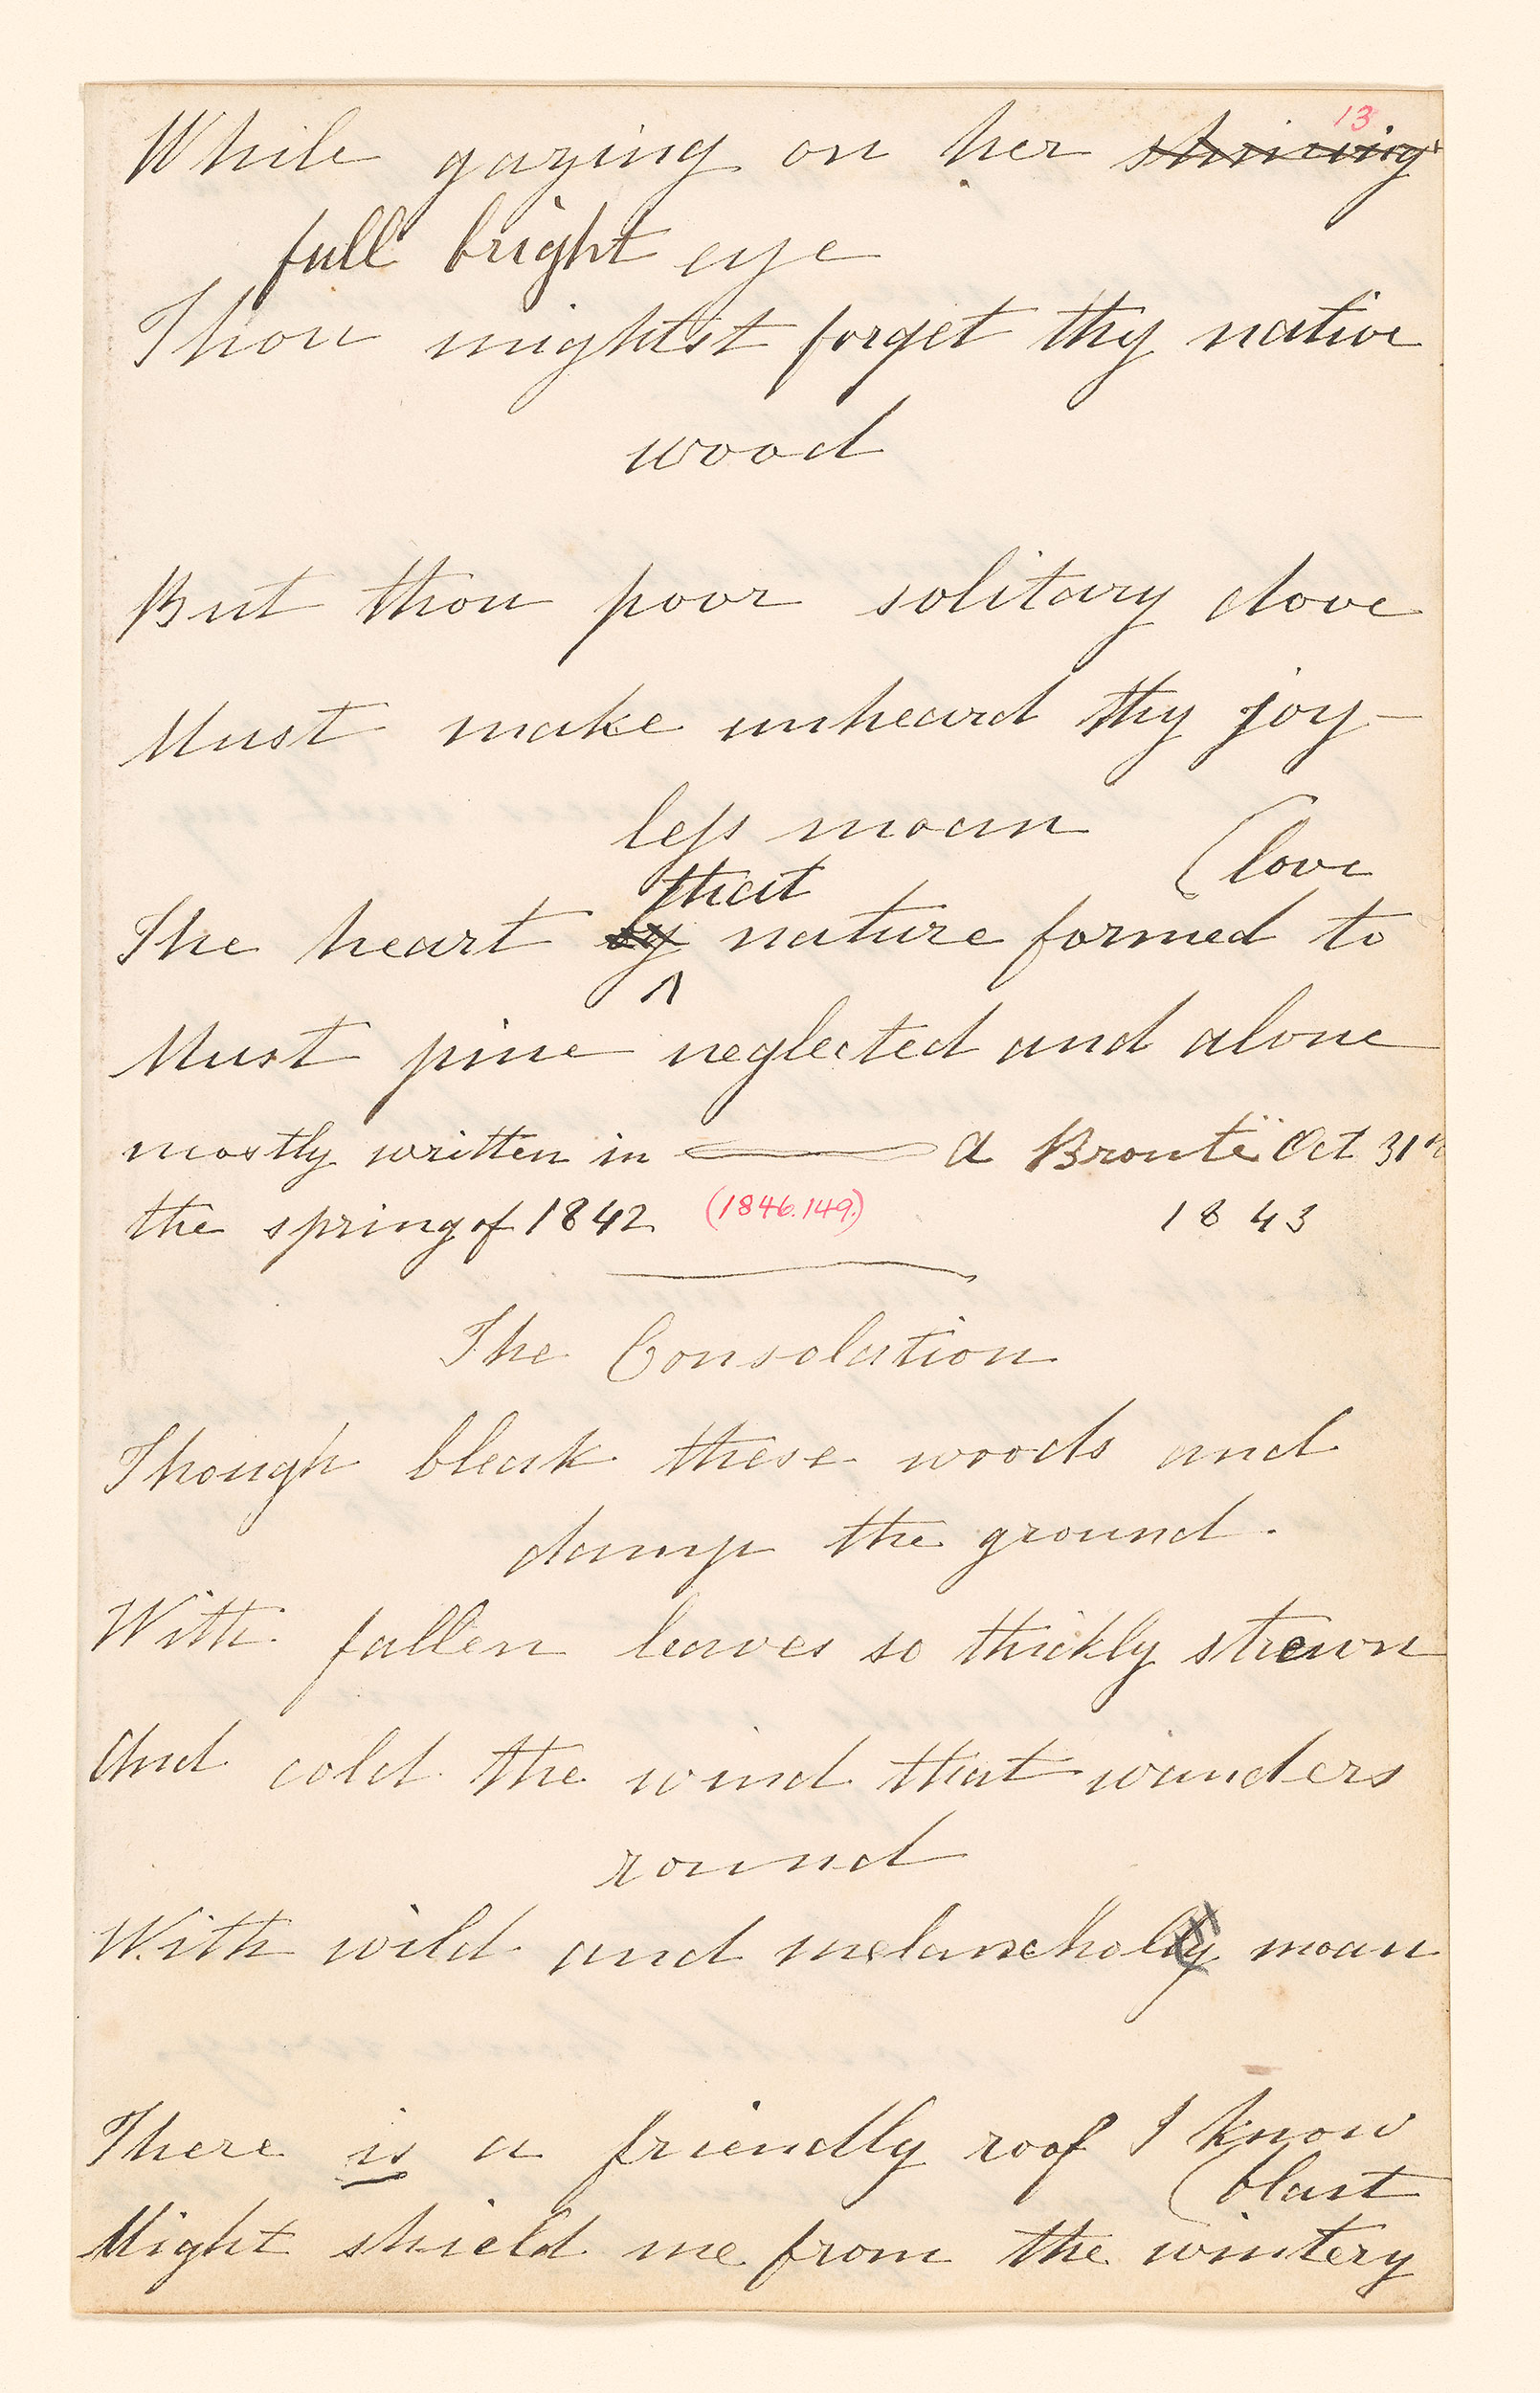 13
While gazing on her shining
full bright eye
Thou mightst forget thy native
wood
But thou poor solitary dove
Must make unheard thy joy—
less moan
(love
that
The heart by nature formed to
Must pine neglected and alone
mostly written in A Brontë Oct 31st
the spring of 1842 (1846.149.) 1843
The Consolation
Though bleak these woods and
damp the ground.
With fallen leaves so thickly strewn
And cold the wind that wanders
round
With wild and melancholy moan
There is a friendly roof I know
(blast
Might shield me from the wintery